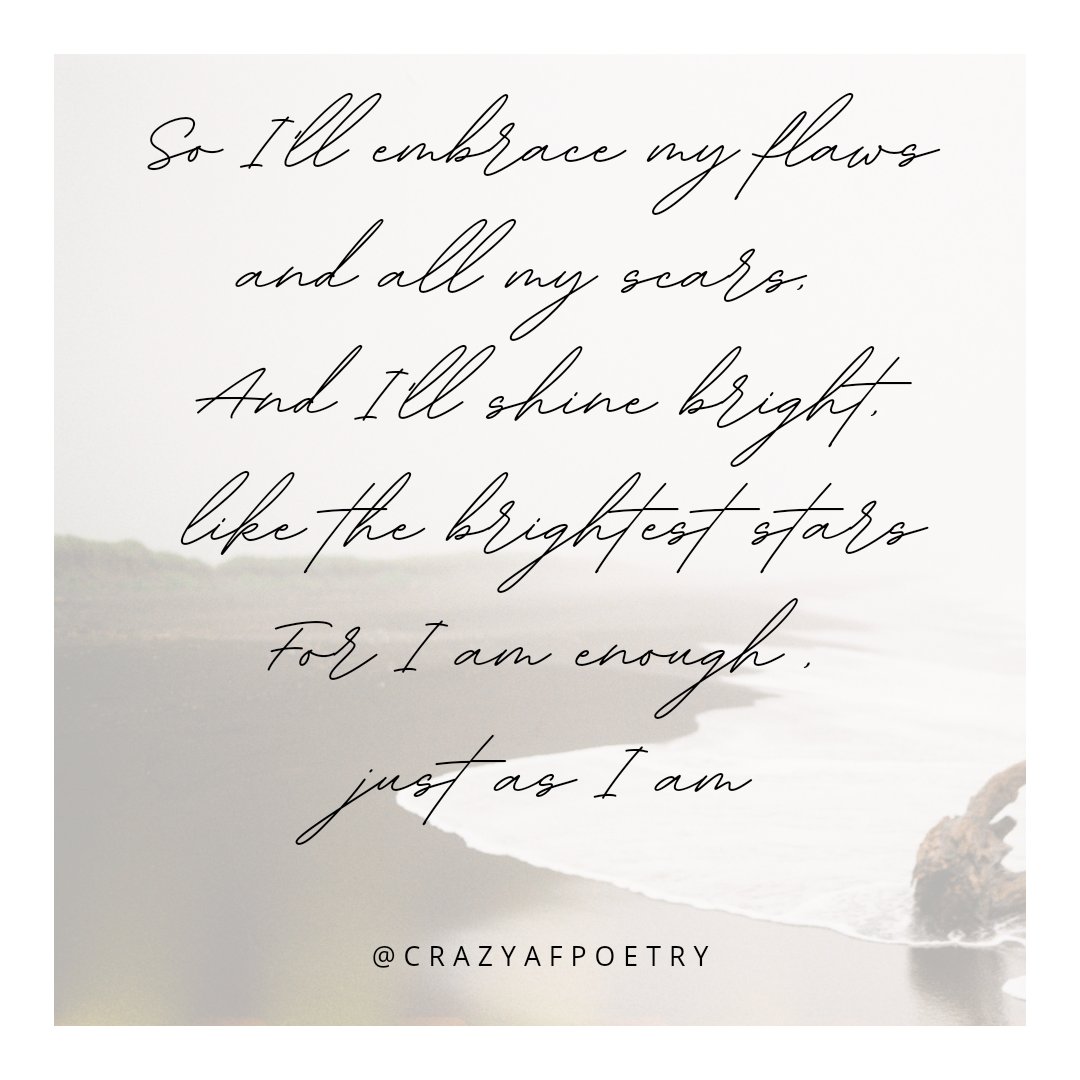 So I'll embrace my flaws
and all my scars,
And I'll shine bright,
like the brightest stars
For I am enough ,
just as I am
@CRAZYAFPOETRY